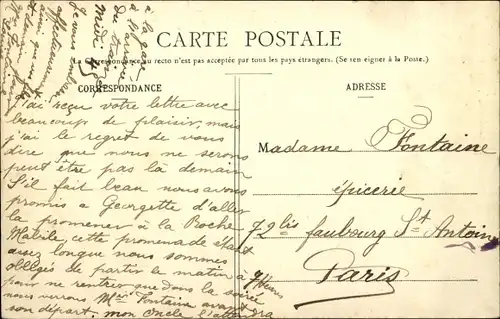 CARTE POSTALE
(La Correspondance au recto n'est pas acceptée par tous les pays étrangers. (Se renseigner à la Poste.)
CORRESPONDANCE
J'ai reçu votre lettre avec
beaucoup de plaisir, mais
j'ai le regret de vous
dire que nous ne serons
peut être pas là demain
S'il fait beau nous avons
promis a Georgette d'aller
la promener à la Roche
Mabile cette promenade étant
assez longue nous sommes
obligés de partir le matin à 7 heures
pour ne rentrer que dans la soirée
nous verrons Mme Fontaine avant
son départ. mon Oncle l'attendra
à la gare
à l'arrivée
du train
Midi 45
Je vous
affectueusement
ainsi que
ADRESSE
Madame Fontaine
épicerie
72 bis faubourg St Antoine
Paris